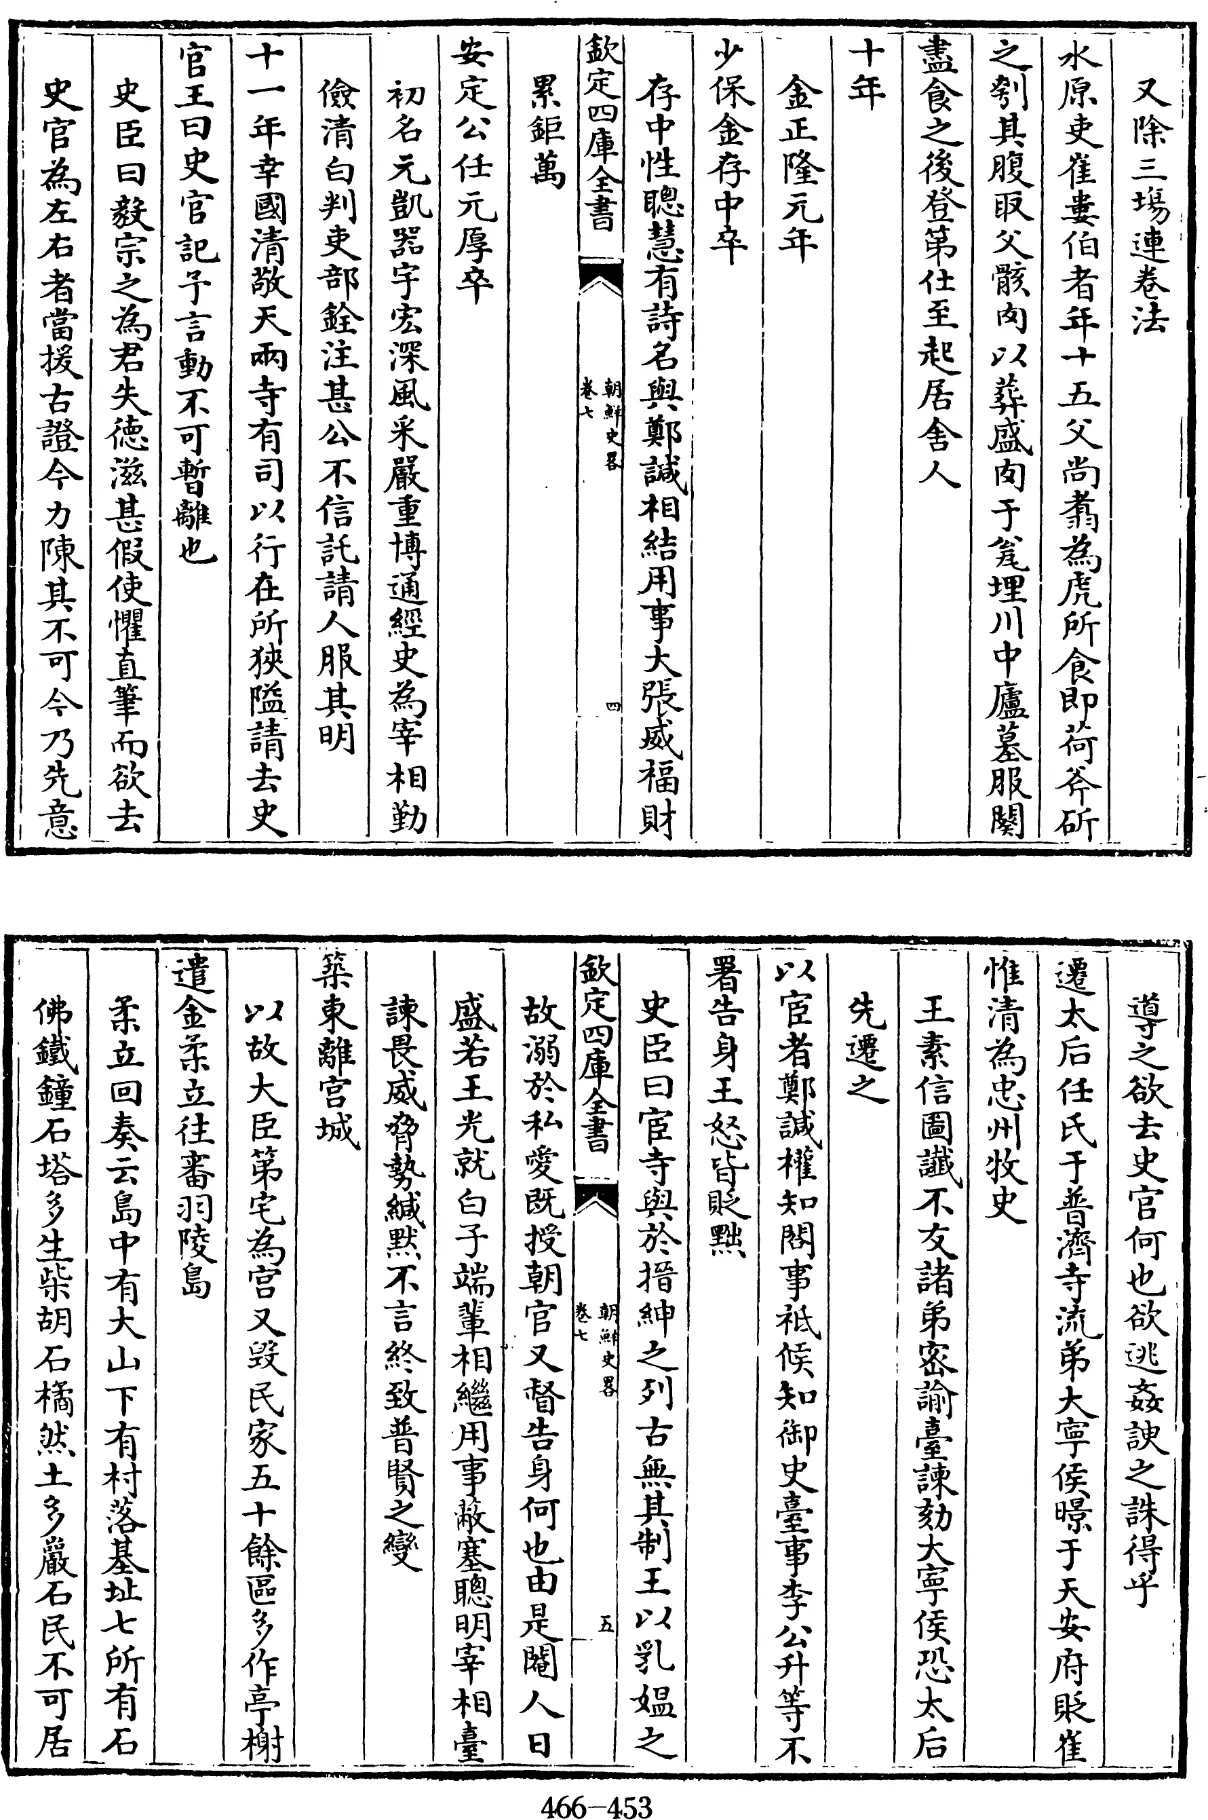 又除三場連卷法
水原吏崔婁伯者年十五父尚翥為虎所食即荷斧斫
之刳其腹取父骸肉以葬盛肉于瓮埋川中廬墓服闋
盡食之後登第仕至起居舍人
十年
金正隆元年
少保金存中卒
存中性聰慧有詩名與鄭諴相結用事大張威福財
欽定四庫全書
朝鮮史畧
卷七
四
累鉅萬
安定公任元厚卒
初名元凱器宇宏深風采嚴重博通經史為宰相勤
儉清白判吏部銓注甚公不信託請人服其明
十一年幸國清敬天兩寺有司以行在所狹隘請去史
官王曰史官記予言動不可暫離也
史臣曰毅宗之為君失德滋甚假使懼直筆而欲去
史官為左右者當援古證今力陳其不可今乃先意
導之欲去史官何也欲逃姦諛之誅得乎
遷太后任氏于普濟寺流弟大寧侯暻于天安府貶崔
惟清為忠州牧史
王素信圖讖不友諸弟密諭臺諫劾大寧侯恐太后
先遷之
以宦者鄭諴權知閤事祗候知御史臺事李公升等不
署告身王怒皆貶黜
史臣曰宦寺與於搢紳之列古無其制王以乳媼之
欽定四庫全書
朝鮮史畧
卷七
五
故溺於私愛既授朝官又督告身何也由是閹人日
盛若王光就白子端輩相繼用事蔽塞聰明宰相臺
諫畏威脅勢緘默不言終致普賢之變
築東離宮城
以故大臣第宅為宮又毀民家五十餘區多作亭榭
遣金柔立往審羽陵島
柔立回奏云島中有大山下有村落基址七所有石
佛鐵鐘石塔多生柴胡石橘然土多巖石民不可居
466-453